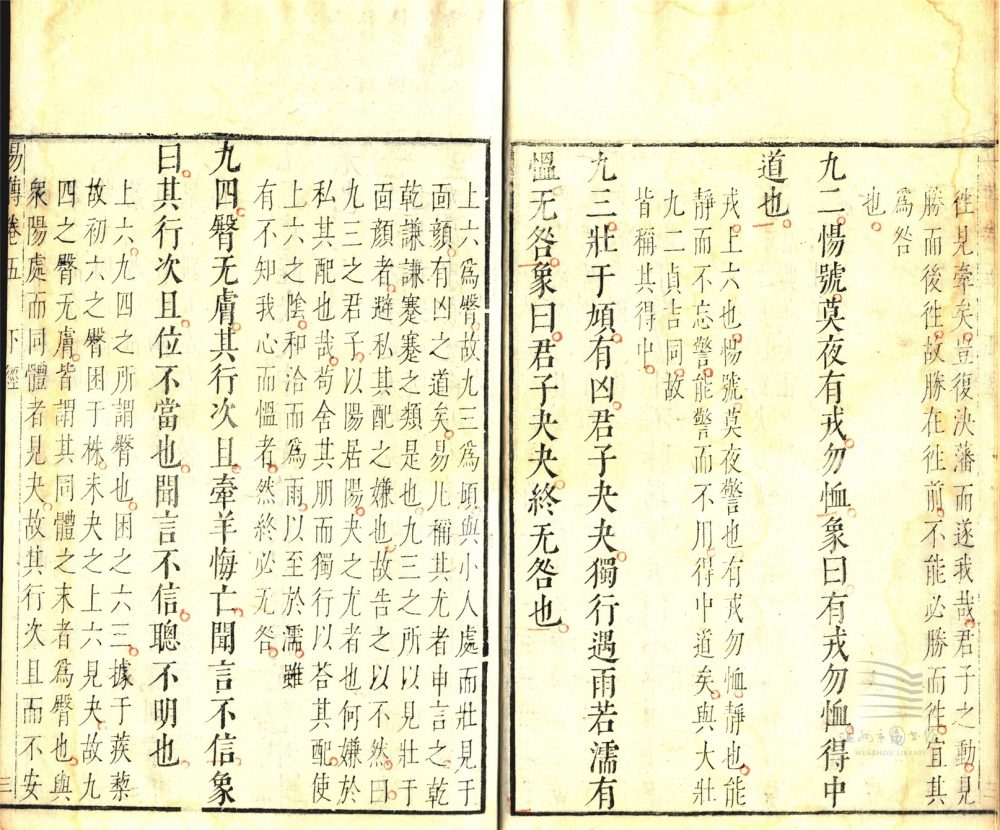 往見牽矣豈復決藩而遂我哉君子之動見
勝而後往故勝在往前不能必勝而往宜其
爲咎
也
九二惕號莫夜有戎勿恤象曰有戎勿恤得中
道也
戎上六也惕號莫夜警也有戎勿恤靜也能
靜而不忘警能警而不用得中道矣與大壯
九二貞吉同故
皆稱其得中
九三壯于頄有凶君子夬夬獨行遇雨若濡有
慍无咎象曰君子夬夬終无咎也
上六爲臀故九三爲頄與小人處而壯見于
面顏有凶之道矣易凡稱其尤者申言之乾
乾謙謙蹇蹇之類是也九三之所以見壯于
面顏者避私其配之嫌也故告之以不然曰
九三之君子以陽居陽夬之尤者也何嫌於
私其配也哉苟舍其朋而獨行以荅其配使
上六之陰和洽而爲雨以至於濡雖
有不知我心而慍者然終必无咎
九四臀无膚其行次且牽羊悔亡聞言不信象
曰其行次且位不當也聞言不信聰不明也
上六九四之所謂臀也困之六三據于蒺藜
故初六之臀困于株未夬之上六見夬故九
四之臀无膚皆謂其同體之末者爲臀也與
衆陽處而同體者見夬故其行次且而不安
易傳卷五 下經 三
溫州市圖書館
WENZHOU LIBRARY